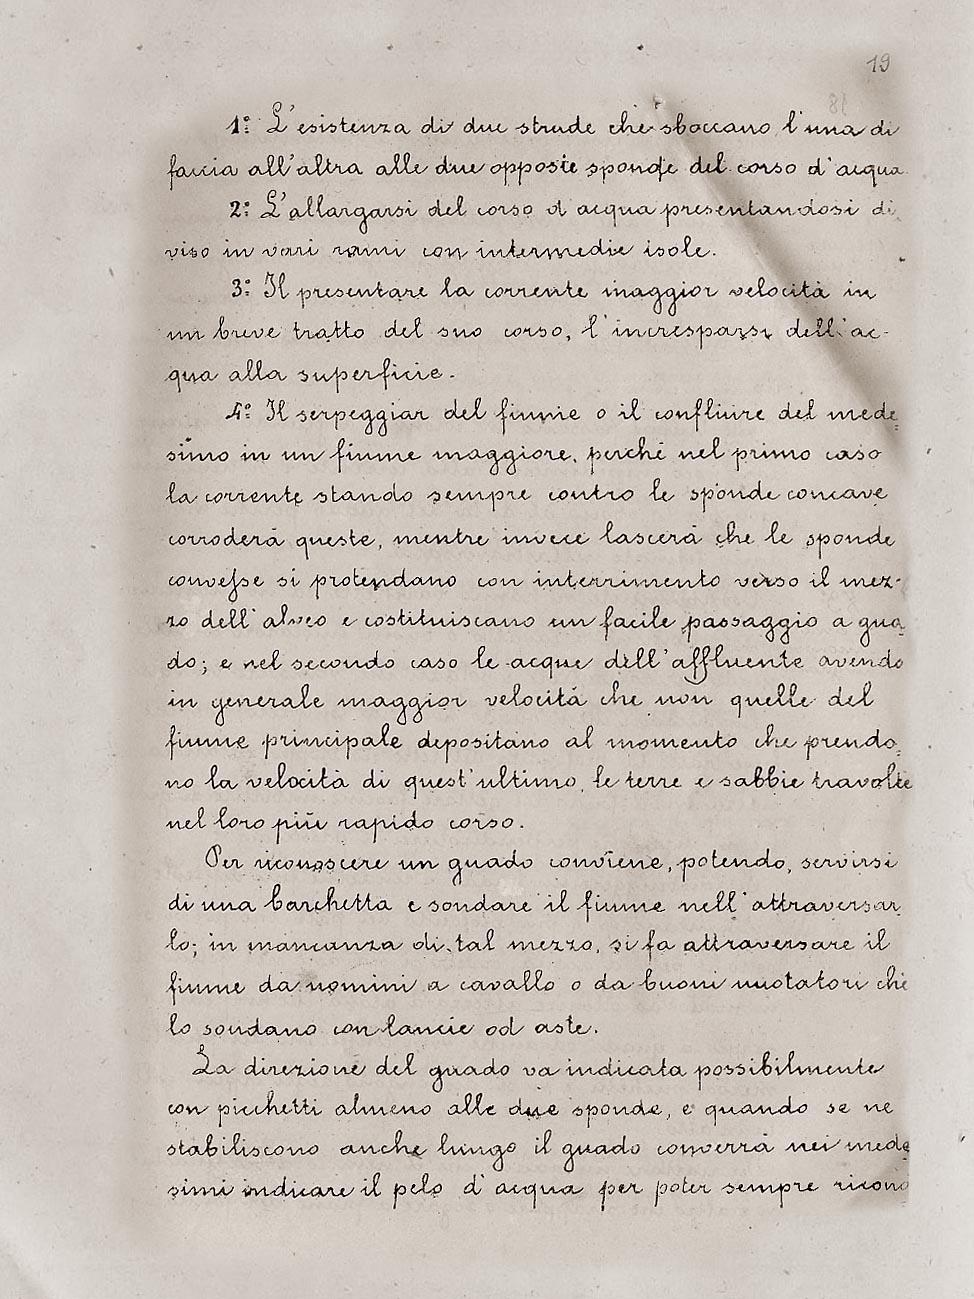 19
18
1º L'esistenza di due strade che sboccano l'una di
faccia all'altra alle due opposte sponde del corso d'acqua
2º L'allargarsi del corso d'acqua presentandosi di
viso in vari rami con intermedie isole.
3º Il presentare la corrente maggior velocità in
un breve tratto del suo corso, l'incresparsi dell'ac-
qua alla superficie.
4º Il serpeggiar del fiume o il confluire del mede=
simo in un fiume maggiore, perché nel primo caso
la corrente stando sempre contro le sponde concave
corroderà queste, mentre invece lascerà che le sponde
convesse si protendano con interrimento verso il mez-
zo dell'alveo e costituiscano un facile passaggio a gua
do; e nel secondo caso le acque dell'affluente avendo
in generale maggior velocità che non quelle del
fiume principale depositano al momento che prendo=
no la velocità di quest'ultimo, le terre e sabbie travolte
nel loro più rapido corso.
Per riconoscere un guado conviene, potendo, servirsi
di una barchetta e sondare il fiume nell'attraversar
lo; in mancanza di tal mezzo, si fa attraversare il
fiume da uomini a cavallo o da buoni nuotatori che
lo sondano con lancie od aste.
La direzione del guado va indicata possibilmente
con picchetti almeno alle due sponde, e quando se ne
stabiliscono anche lungo il guado converrà nei mede
simi indicare il pelo d'acqua per poter sempre ricono